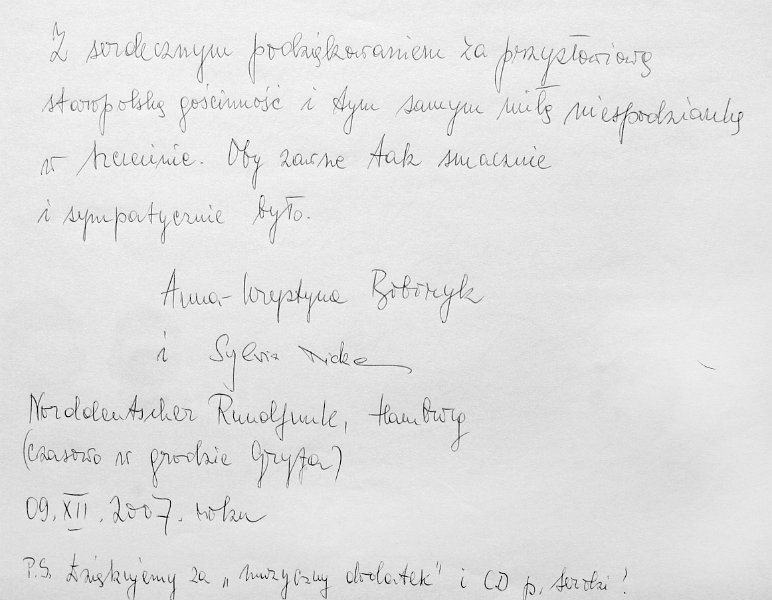 Z serdecznym podziękowaniem za przysłowiową
staropolską gościnność i tym samym miłą niespodziankę
w Szczecinie. Oby zawsze tak smacznie
i sympatycznie było.
Anna-Krystyna
i Sylvia
Norddeutscher Rundfunk, Hamburg
(czasowo w grodzie Gryfa)
09. XII. 2007. roku
P.S. Dziękujemy za „muzyczny dodatek" i CD p.